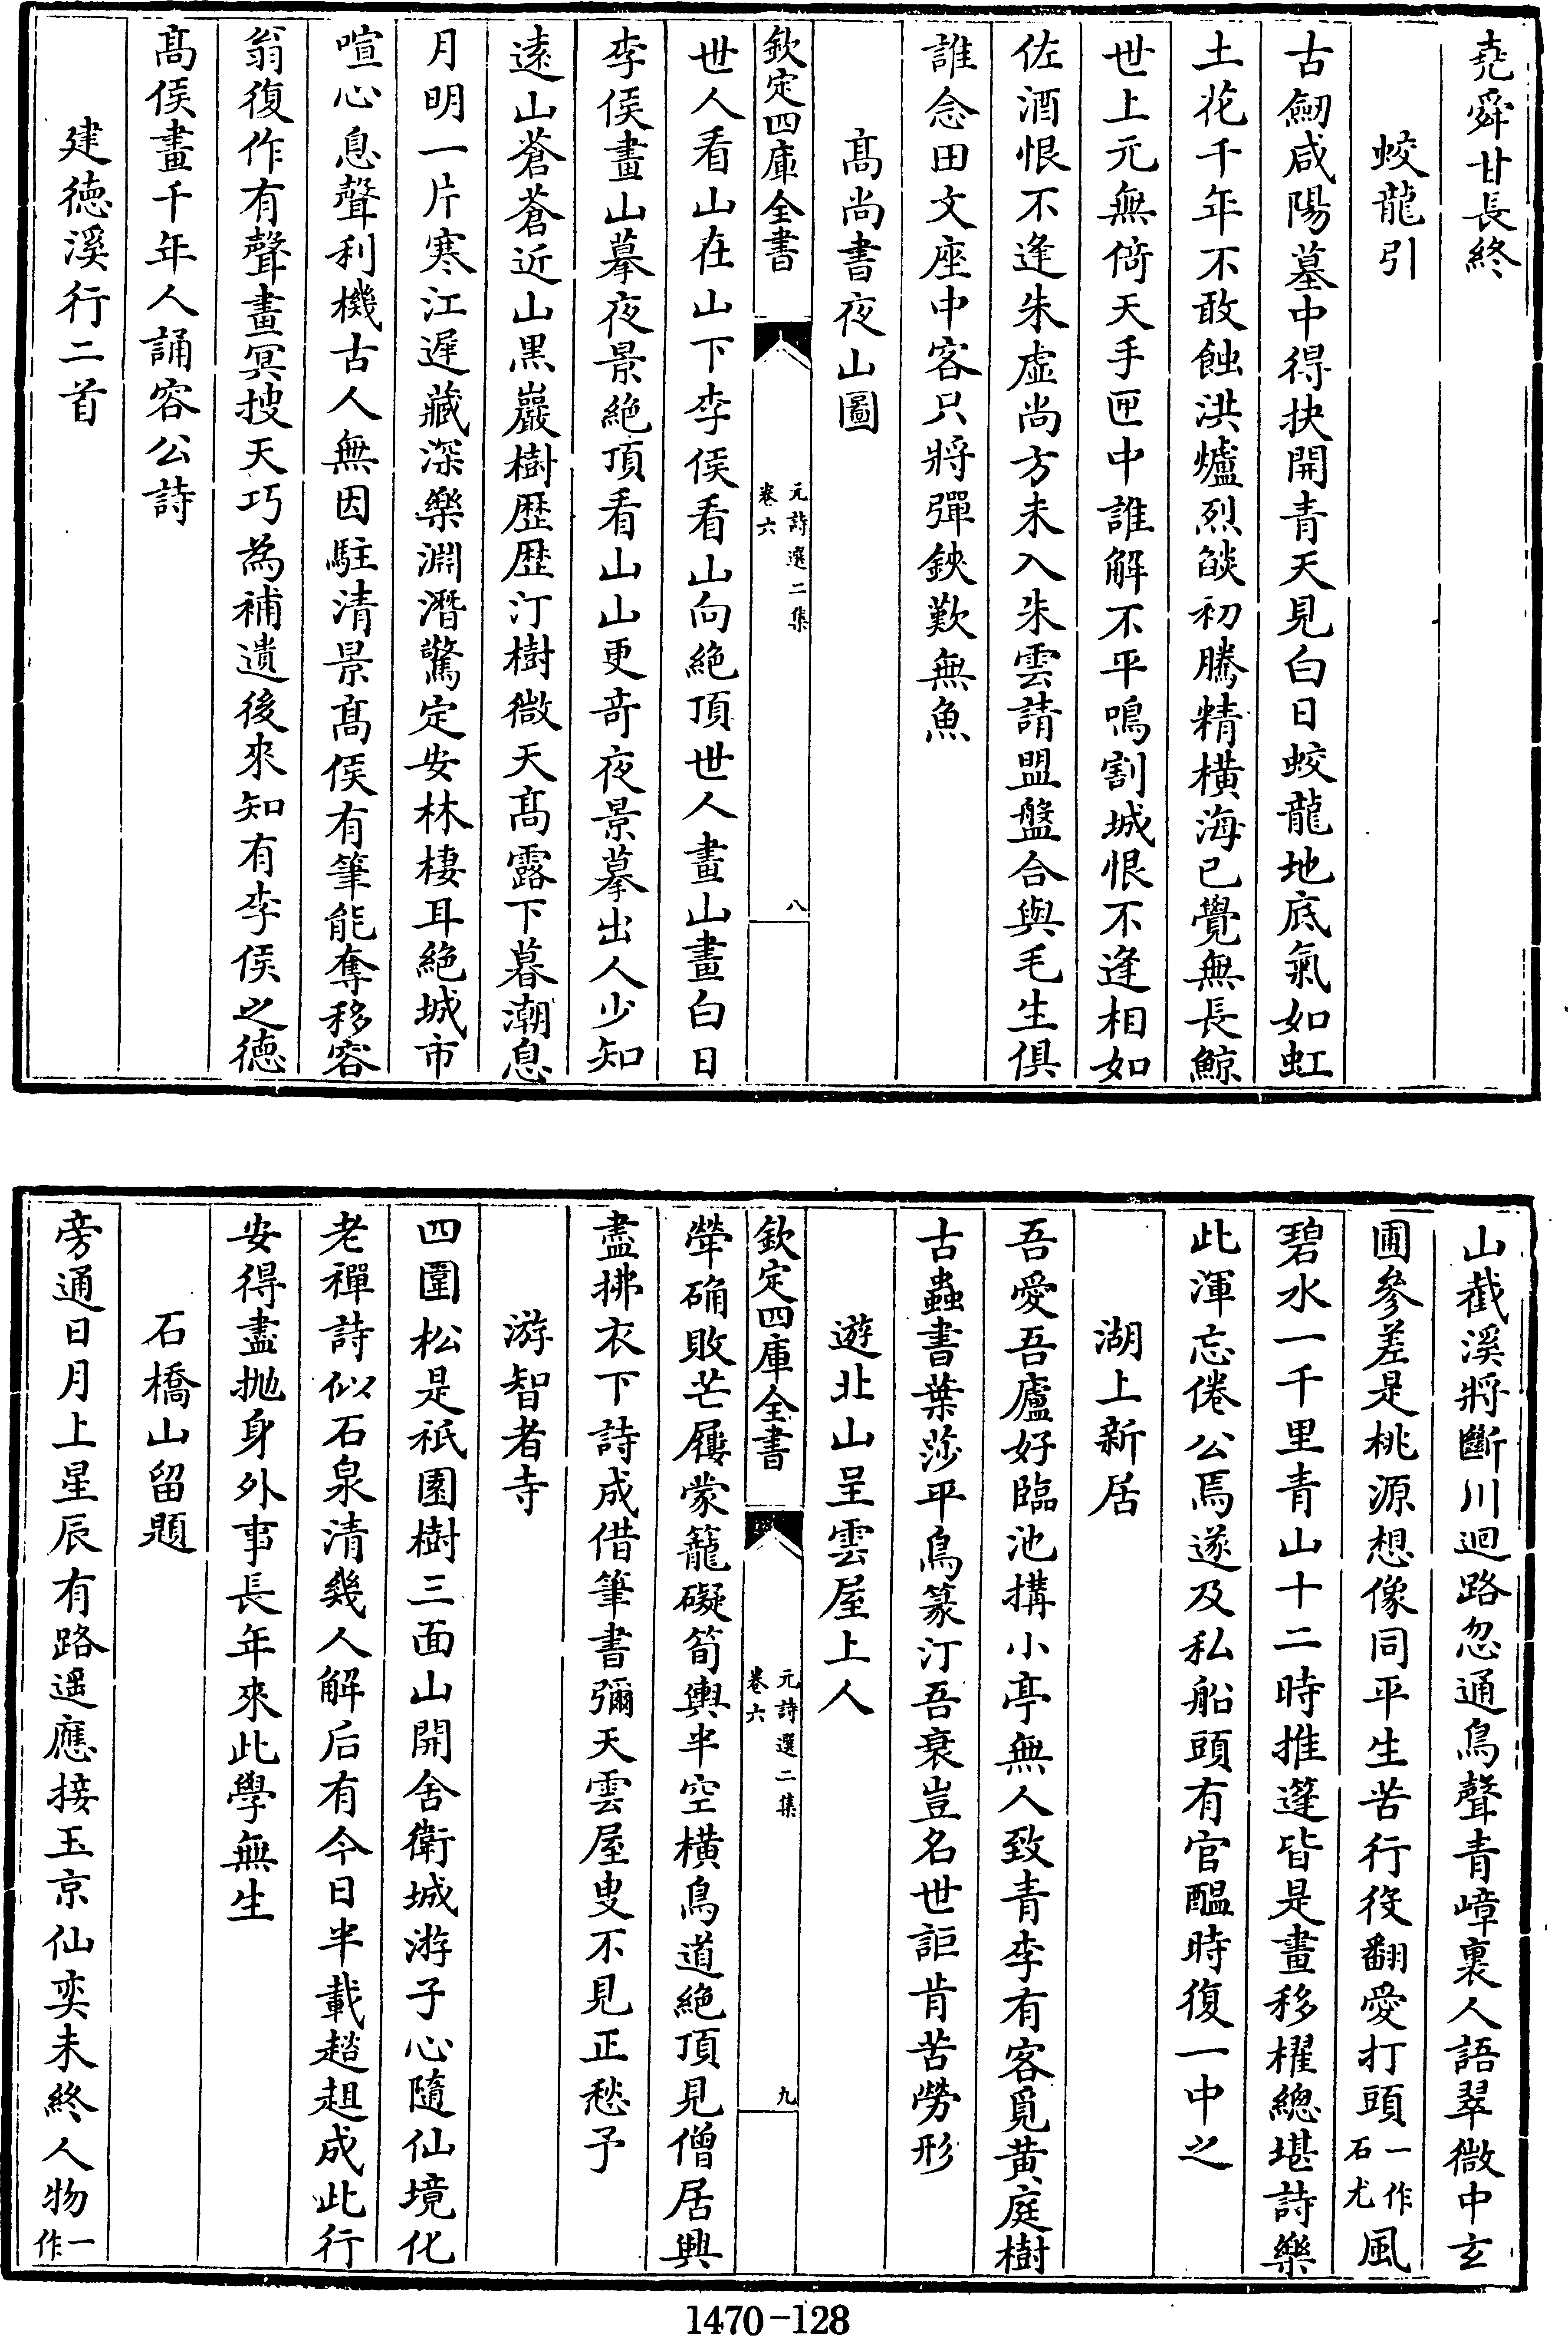 堯舜甘長終
蛟龍引
古劒咸陽墓中得抉開青天見白日蛟龍地底氣如虹
土花千年不敢蝕洪爐烈燄初騰精橫海已覺無長鯨
世上元無倚天手匣中誰解不平鳴割城恨不逢相如
佐酒恨不逢朱虛尚方未入朱雲請盟盤合與毛生俱
誰念田文座中客只將彈鋏歎無魚
髙尚書夜山圖
欽定四庫全書
元詩選二集
卷六
八
世人看山在山下李侯看山向絶頂世人畫山畫白日
李侯畫山摹夜景絶頂看山山更竒夜景摹出人少知
逺山蒼蒼近山黒巖樹歴歴汀樹微天髙露下暮潮息
月明一片寒江遲藏深樂淵潛驚定安林棲耳絶城市
喧心息聲利機古人無因駐清景髙侯有筆能奪移容
翁復作有聲畫冥搜天巧為補遺後來知有李侯之德
髙侯畫千年人誦容公詩
建德溪行二首
山截溪將斷川迴路忽通鳥聲青嶂裏人語翠微中玄
圃參差是桃源想像同平生苦行役翻愛打頭一作石尤風
碧水一千里青山十二時推篷皆是畫移櫂總堪詩樂
此渾忘倦公焉遂及私船頭有官醖時復一中之
湖上新居
吾愛吾廬好臨池搆小亭無人致青李有客覓黃庭樹
古蟲書葉莎平鳥篆汀吾衰豈名世詎肯苦勞形
遊北山呈雲屋上人
欽定四庫全書
元詩選二集
卷六
九
犖确敗芒屨蒙籠礙筍輿半空橫鳥道絶頂見僧居興
盡拂衣下詩成借筆書彌天雲屋叟不見正愁予
游智者寺
四圍松是祇園樹三面山開舍衛城游子心隨仙境化
老禪詩似石泉清幾人解后有今日半載趦趄成此行
安得盡抛身外事長年來此學無生
石橋山留題
旁通日月上星辰有路遥應接玉京仙奕未終人物一作
1470-128